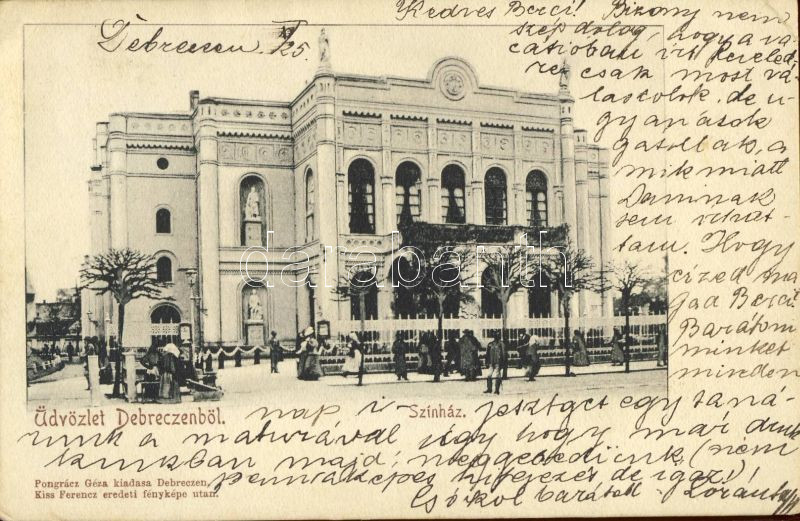 Debreczen. 25.
Kedves Berci! Bizony nem
szép dolog, hogy a va-
cátióban írt leveled-
re csak most vá-
laszolok, de u-
gyanazok
a
mik miatt
Daninak
sem vihat-
tam. Hogy
érzed ma
gad Berci?
Barátom
minket
minden
nap i- jesztget egy taná-
runk a maturával úgy hogy már
majd meggebedünk (nem
kifejezés, de igaz)!
Csókol barátod Lóránt
Üdvözlet Debreczenből.
Színház.
Pongrácz Géza kiadasa Debreczen,
Kiss Ferencz eredeti fényképe utan.
darabanth